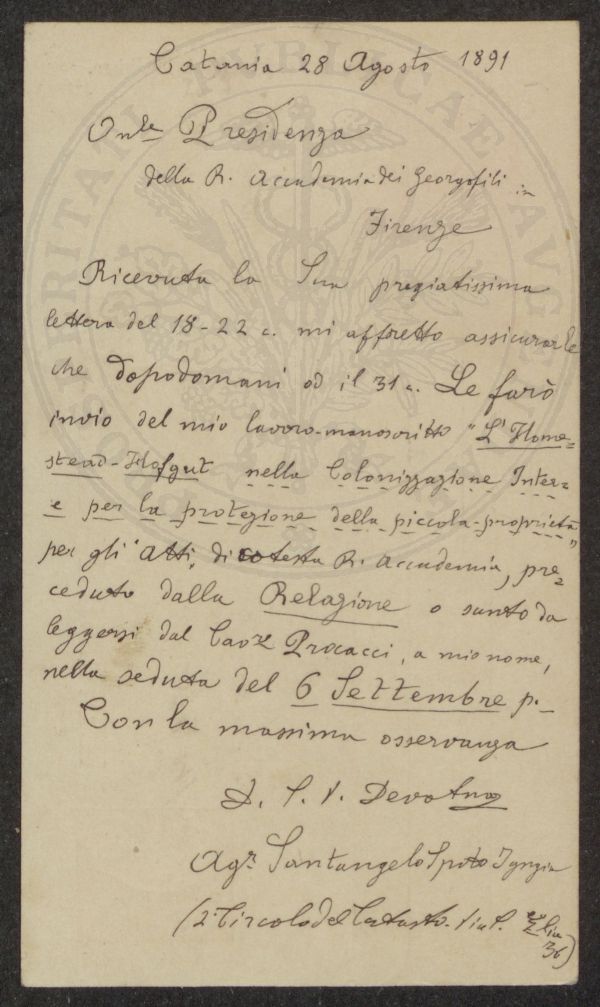 Catania 28 Agosto 1891
Onle Presidenza
della R. Accademia dei Georgofili in
Firenze
Ricevuta la Sua pregiatissima
lettera del 18-22 c. mi affretto assicurarle
che dopodomani od il 31 c. Le farò
invio del mio lavoro-manoscritto "L'Home=
stead-Hofgut nella Colonizzazione Inter=
e per la protezione della piccola-proprietà"
per gli "Atti" di cotesta R. Accademia, pre=
ceduto dalla Relazione o sunto da
leggersi dal Cavre Procacci, a mio nome,
nella seduta del 6 Settembre p.-
Con la massima osservanza
D. S. V. Devotmo
Agr. Santangelo Spoto Ippolito
(2° Circolo del Catasto. Via S.
36)
SOC
PVBLICAE